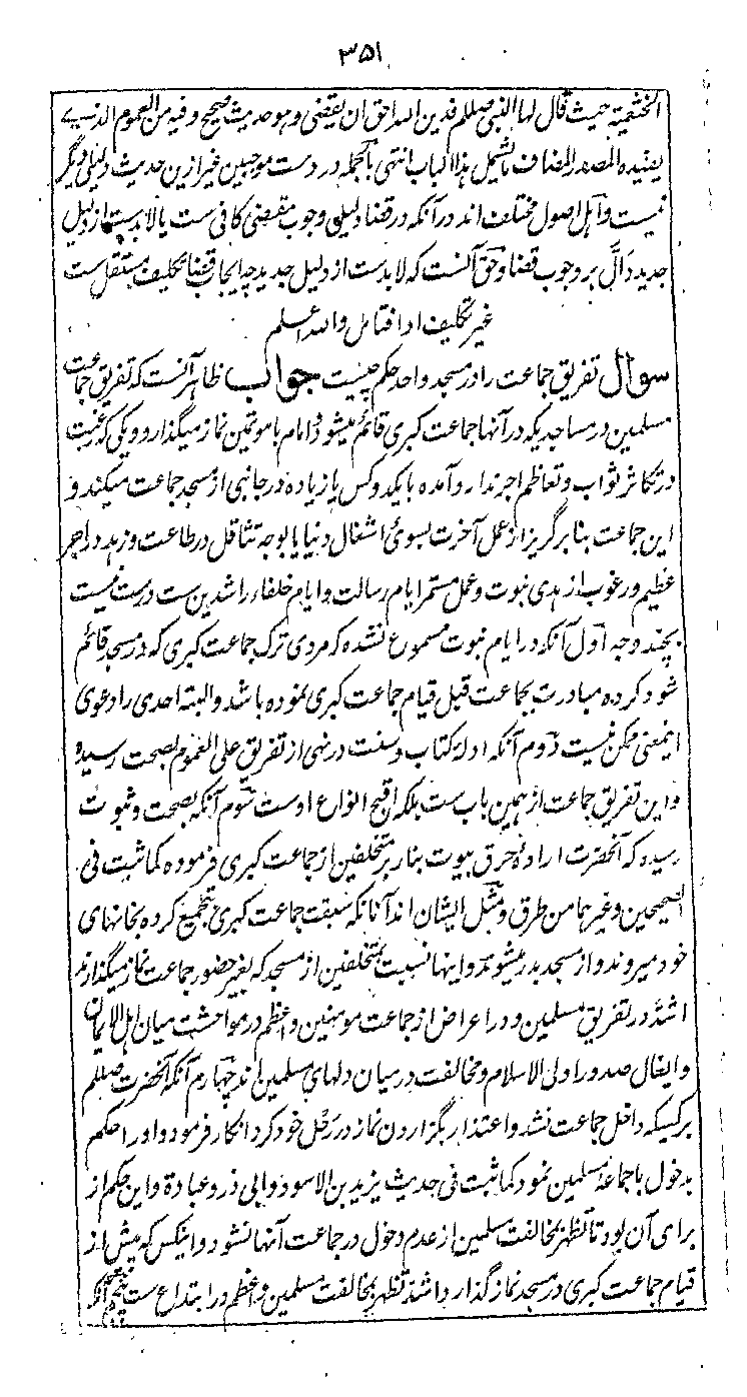 ۳۵۱
الخثعمیة حیث قال لها النبی صلعم فدین الله احق ان یقضی و هو حدیث صحیح و فیه من العموم الذے
یفیده المصدر المضاف ما یشمل هذا الباب انتهی بالجمله در دست موجبین غیر ازین حدیث دلیلی دیگر
نیست و اهل اصول مختلف اند در آنکه در قضا دلیل وجوب مقضی کافی ست یا لابدست از دلیل
جدید دالّ بر وجوب قضا و حق آنست که لابدست از دلیل جدید چه ایجاب قضا تکلیف مستقل ست
غیر تکلیف ادا فتامل والله اعلم
سوال تفریق جماعت را در مسجد واحد حکم چیست جواب ظاهر آنست که تفریق جماعت
مسلمین در مساجدیکه در آنها جماعت کبری قائم میشود و امام با موتمین نماز میگذارد و یکی که رغبت
در تکاثر ثواب و تعاظم اجر ندارد آمده با یکدو کس یا زیاده در جانبی از مسجد جماعت میکند و
این جماعت بنا بر گریز از عمل آخرت بسوئ اشغال دنیا یا بوجه تثاقل در طاعت و زهد در اجر
عظیم و رغوب از هدی نبوت و عمل مستمر ایام رسالت و ایام خلفاء راشدین ست درست نیست
بچند وجه اول آنکه در ایام نبوت مسموع نشده که مردی ترک جماعت کبری که در مسجد قائم
شود کرده مبادرت بجماعت قبل قیام جماعت کبری نموده باشد و البته احدی را دعوی
اینمعنی ممکن نیست دوم آنکه ادلهٔ کتاب و سنت در نهی از تفریق علی العموم بصحت رسیده
و این تفریق جماعت از همین باب ست بلکه اقبح انواع اوست سوم آنکه بصحت و ثبوت
رسیده که آنحضرت ارادهٔ حرق بیوت بنا بر متخلفین از جماعت کبری فرموده کما ثبت فی
الصحیحین و غیرهما من طرق و مثل ایشان اند آنانکه سبقت جماعت کبری بتجمیع کرده بخانهای
خود میروند و از مسجد بدر میشوند و اینها نسبت بمتخلفین از مسجد که بغیر حضور جماعت نماز میگذارند
اشدّ در تفریق مسلمین و در اعراض از جماعت مومنین و اعظم در مواحشت میان اهل الایمان
و ایغال صدور اولی الاسلام و مخالفت درمیان دلهای مسلمین اند چهارم آنکه آنحضرت صلعم
بر کسیکه داخل جماعت نشد و اعتذار بگزاردن نماز در رحل خود کرد انکار فرمود و او را حکم
بدخول با جماعهٔ مسلمین نمود کما ثبت فی حدیث یزید بن الاسود و ابی ذر و عبادة و این حکم از
برای آن بود تا تظهر بمخالفت مسلمین از عدم دخول در جماعت آنها نشود و اینکس که پیش از
قیام جماعت کبری در مسجد نماز گذارد اشد تظهر بمخالفت مسلمین و اعظم در ابتداع ست پنجم آنکه